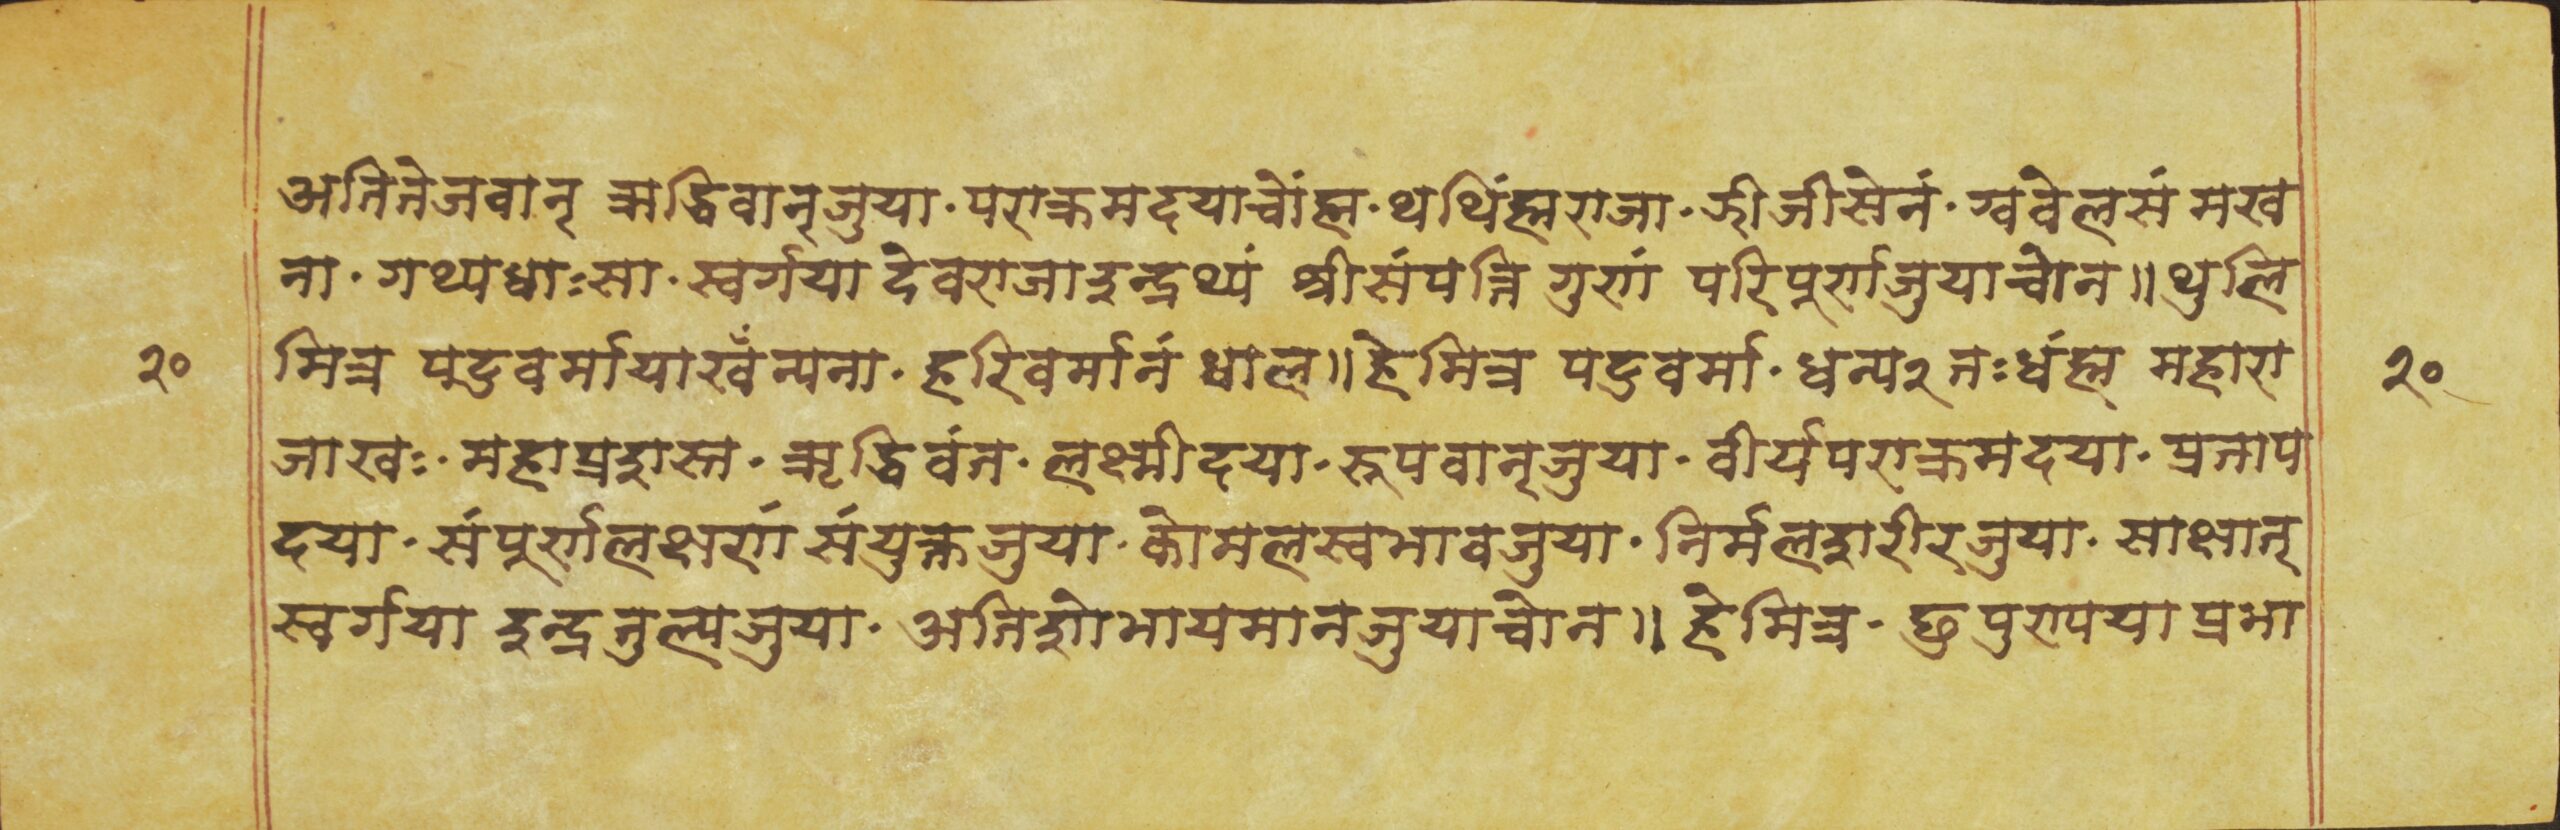 अतितेजवान् ऋद्धिवान्जुया· पराक्रमदयाचोंह्म· थथिंह्मराजा· झीजीसेनं· खवेलसं मख
ना· गथ्यधाःसा· स्वर्गया देवराजाइन्द्रथ्यं श्रीसंपत्ति गुणं परिपूर्णजुयाचोन॥ थुलि
२० मित्र पटुवर्मायाखँन्यना· हरिवर्मानं धाल॥ हे मित्र पटुवर्मा· धन्य२ तःधंह्म महारा २०
जाखः· महाप्रशस्त· ऋद्धिवंत· लक्ष्मीदया· रूपवान्जुया· वीर्यपराक्रमदया· प्रताप
दया· संपूर्णलक्षणं संयुक्तजुया· कोमलस्वभावजुया· निर्मलशरीरजुया· साक्षात्
स्वर्गया इन्द्रतुल्यजुया· अतिशोभायमानजुयाचोन॥ हे मित्र· छु पुण्यया प्रभा